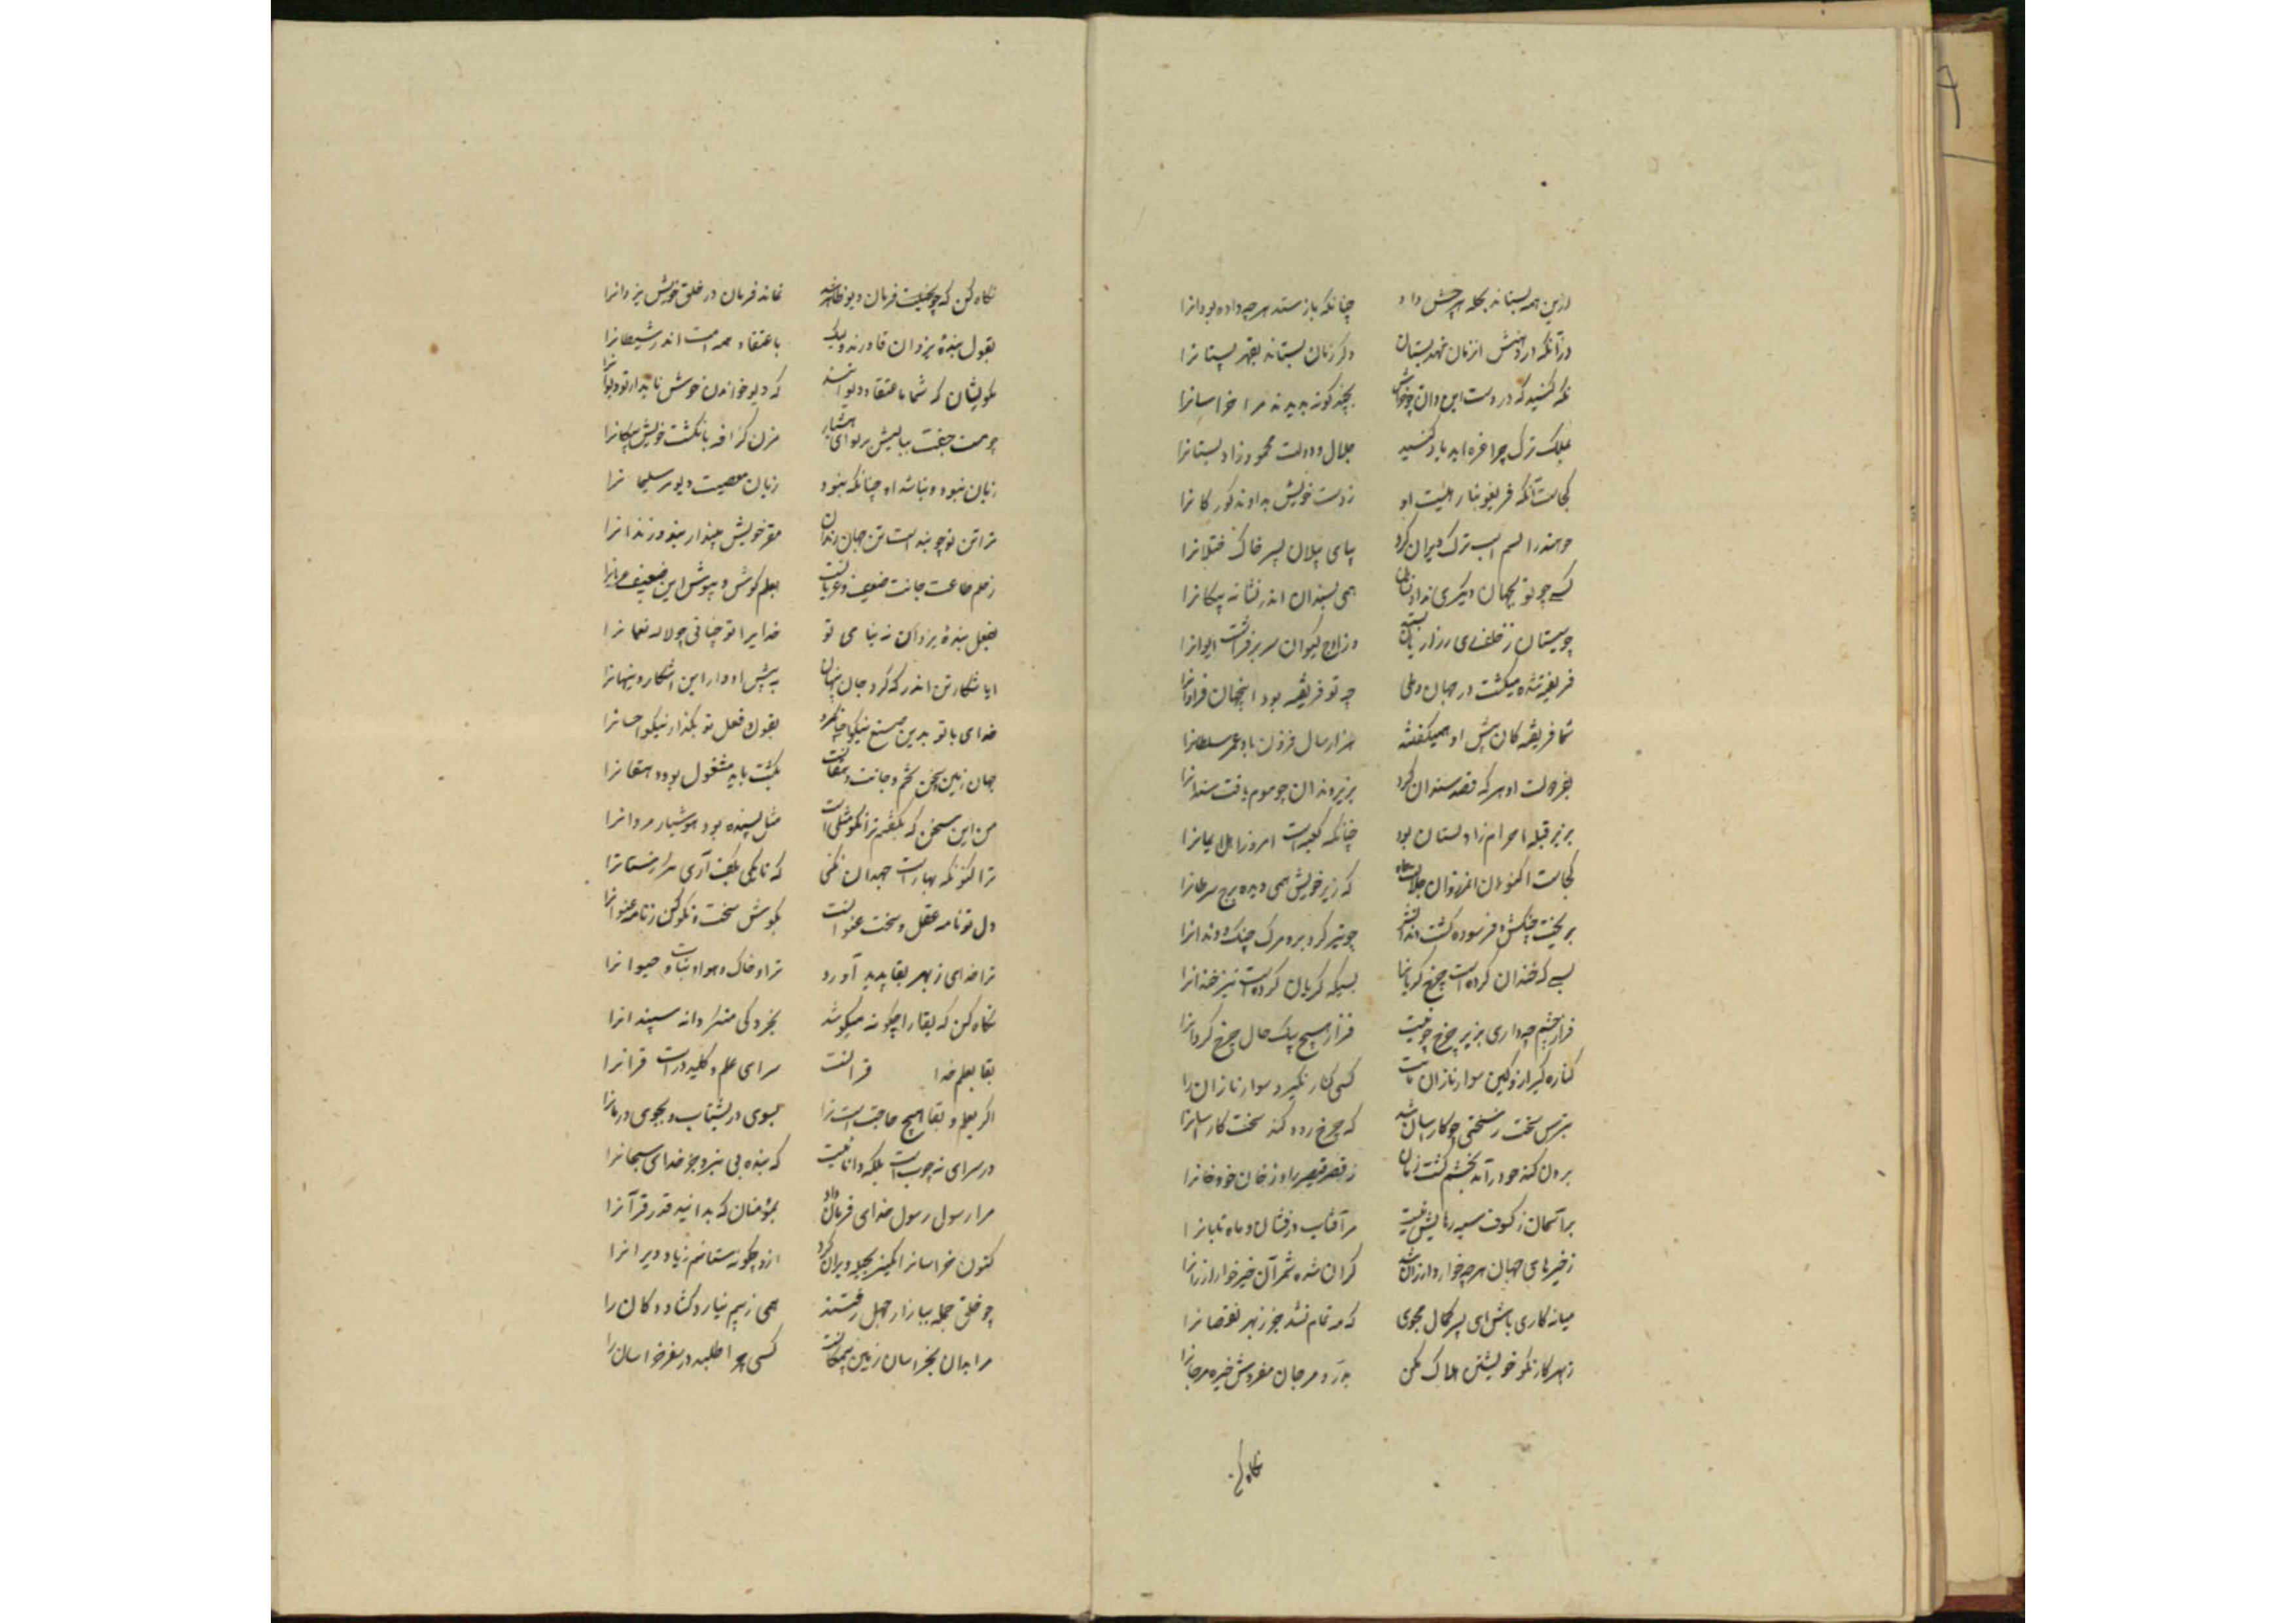 ازین همه بستاند بجمله هر چش داد چنانکه باز ستد هر چه داده بود انرا
از آنکه در دهنش این زمان نهد پستان دگر زمان بستاند بقهر پستانرا
نگه کنید که در دست این و آن چو خراس بچند گونه بدیدند مر خراسانرا
بملک ترک چرا غره اید یاد کنید جلال و دولت محمود زاولستانرا
کجاست آنکه فریغونیان ز هیبت او ز دست خویش بدادند گوزکانانرا
چو هند را بسم اسب ترک ویران کرد بپای پیلان بسپرد خاک ختلانرا
کسی چو تو بجهان دیگری نداد نشان همی بسندان اندر نشاند پیکانرا
چو سیستان ز خلف ری ز رازیان بستد وز اوج کیوان سر برفراشت ایوانرا
فریفته شده میگشت در جهان و بلی چو تو فریفته بود اینجهان فراوانرا
شما فریفتگان پیش او همیگفتند هزار سال فزون باد عمر سلطانرا
بفر دولت او هر که قصد سندان کرد بزیر دندان چو موم یافت سندانرا
پریر قبله احرار زاولستان بود چنانکه کعبه است امروز اهل ایمانرا
کجاست اکنون آن فر و آن جلالت و جاه که زیر خویش همی دید برج سرطانرا
بریخت چنگش و فرسوده گشت دندانش چو تیز کرد برو مرگ چنگ و دندانرا
بسی که خندان کرده است چرخ گریانرا بسیکه گریان کرده است نیز خندانرا
قرار چشم چه داری بزیر چرخ چو نیست قرار هیچ بیک حال چرخ گردانرا
کناره گیر ازو کین سوار تازان است کسی کنار نگیرد سوار تازان را
بترس سخت ز سختی چو کار آسان شد که چرخ زود کند سخت کار آسانرا
برون کند چو درآید بخشم گشت زمان ز قصر قیصر را و ز خان خود خانرا
بر آسمان ز کسوف سیه رهایش نیست مر آفتاب درفشان و ماه تابانرا
ز چیزهای جهان هر چه خوار و ارزان شد گران شده شمر آن چیز خوار ارزانرا
میانه کاری باش ای پسر کمال مجوی که مه تمام نشد جز ز بهر نقصانرا
ز بهر کار نکو خویشتن هلاک مکن بدر و مرجان مفروش خیره مر جانرا
نگاه کن
نگاه کن که چو بیخبلت فرمان دیو ظاهر شد نماند فرمان در خلق خویش یزدانرا
بقول بنده یزدان قادرند ولیک باعتقاد همه امت اند شیطانرا
بگویشان که شما باعتقاد دیوانند که دیو خواندن خوش ناید ار تو دیوانرا
چو هست جفت ببالینش بر تو ای هشیار مزن گزافه بانگشت خویش پنگانرا
زیان نبود و نباشد او چنانکه نبود زیان معصیت دیو مر سلیمانرا
ترا تن تو چو بند است و تن جهان زندان مقر خویش مپندار بند و زندانرا
ز علم طاعت جانت ضعیف و عریانست بعلم کوش و بپوش این ضعیف عریانرا
بفعل بنده یزدان نه بنامی تو خدایرا تو چنانی چو لاله نعمانرا
ایا شکار تن اندر که کرد جان پنهان به پیش او دار این آشکار و پنهانرا
خدای با تو بدین صنع نیکو احسان کرد بقول و فعل تو بگذار نیکو احسانرا
جهان زمین و سخن تخم و جانت دهقانست بکشت باید مشغول بود دهقانرا
من این سخن که بگفتم ترا نکو مثل است مثل بسنده بود هوشیار مردانرا
ترا کنون که بهار است جهد آن نکنی که تا یکی بکف آری مر زمستانرا
دل تو نامه عقل و سخنت عنوانست بکوش سخت و نکو کن ز نامه عنوانرا
ترا خدای ز بهر بقا پدید آورد ترا و خاک و هوا و نبات و حیوانرا
نگاه کن که بقا را چگونه میکوشد بخردگی منگر دانه سپندانرا
بقا بعلم خدا قرآنست سرای علم و کلید در است قرآنرا
اگر بعلم و بقا هیچ حاجت است ترا بسوی در بشتاب و بجوی دربانرا
در سرای نه چوب است بلکه دانائیست که بنده نیست بجز خدای سبحانرا
مرا رسول رسول خدای فرمان داد بمؤمنان که بدانید قدر قرآنرا
کنون خراسانرا ویران کرد ازو چگونه ستانم زیاد ویرانرا
چو خلق جمله ببازار جهل رفتستند همی ز بیم نیارد گشاد دکان را
مرا بدان بخراسان زمین یمگانست کسی چرا طلبد در سفر خراسان را